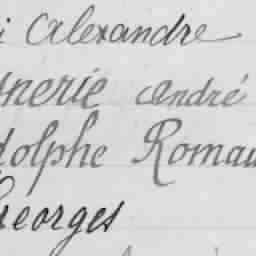 i Alexandre
nerie André
dolphe Romau
Georges